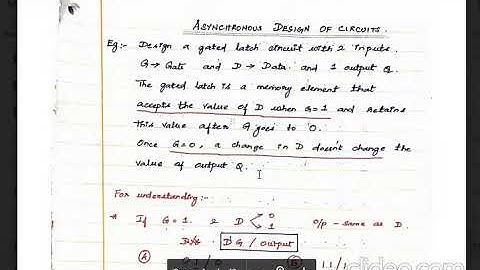 ASYNCHRONOUS DESIGN OF CIRCUITS.
Eg:- Design a gated latch circuit with 2 inputs.
G → Gate and D → Data. and 1 output Q.
The gated latch is a memory element that
accepts the value of D when G=1 and Retains
this value after G goes to 0.
Once G=0, a change in D doesn't change the
value of output Q.
For understanding:-
* If G=1. & D < 0 1 o/p - same as D.
D G / output
A B
clideo.com